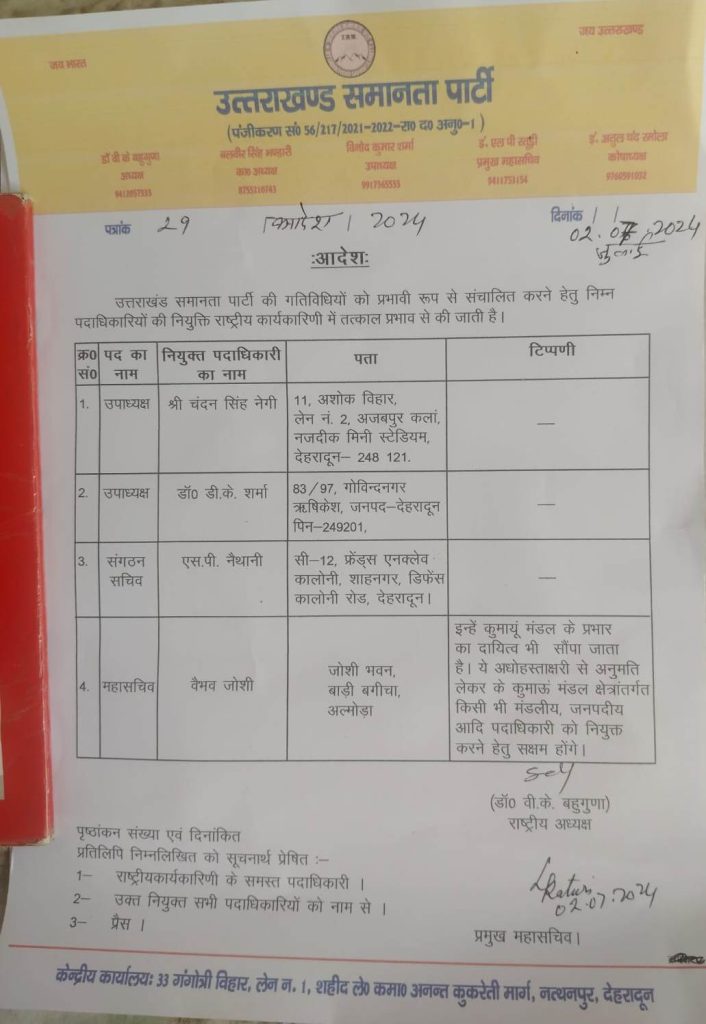 जय भारत
जय उत्तराखण्ड
उत्तराखण्ड समानता पार्टी
(पंजीकरण सं० 56/217/2021-2022-रा० द० अनु०-1)
डॉ वी के बहुगुणा
अध्यक्ष
बलवीर सिंह भण्डारी
का० अध्यक्ष
8755210743
विनोद कुमार शर्मा
उपाध्यक्ष
9917365555
इं. एल पी रतूड़ी
प्रमुख महासचिव
9411753154
इं. अतुल चंद रमोला
कोषाध्यक्ष
पत्रांक 29 / आदेश / 2024
दिनांक 02.07.2024
जुलाई
:आदेश:
उत्तराखंड समानता पार्टी की गतिविधियों को प्रभावी रूप से संचालित करने हेतु निम्न
पदाधिकारियों की नियुक्ति राष्ट्रीय कार्यकारिणी में तत्काल प्रभाव से की जाती है।
क्र० सं०
पद का नाम
नियुक्त पदाधिकारी का नाम
पता
टिप्पणी
1. उपाध्यक्ष श्री चंदन सिंह नेगी
11, अशोक विहार,
लेन नं. 2, अजबपुर कलां,
नजदीक मिनी स्टेडियम,
देहरादून– 248 121.
—
2. उपाध्यक्ष डॉ० डी.के. शर्मा
83/97, गोविन्दनगर
ऋषिकेश, जनपद–देहरादून
पिन–249201,
—
3. संगठन सचिव एस.पी. नैथानी
सी–12, फ्रेंड्स एनक्लेव
कालोनी, शाहनगर, डिफेंस
कालोनी रोड, देहरादून।
—
4. महासचिव वैभव जोशी
जोशी भवन,
बाड़ी बगीचा,
अल्मोड़ा
इन्हें कुमायूं मंडल के प्रभार
का दायित्व भी सौंपा जाता
है। ये अधोहस्ताक्षरी से अनुमति
लेकर के कुमाऊं मंडल क्षेत्रांतर्गत
किसी भी मंडलीय, जनपदीय
आदि पदाधिकारी को नियुक्त
करने हेतु सक्षम होंगे।
Sd/
(डॉ० वी.के. बहुगुणा)
राष्ट्रीय अध्यक्ष
पृष्ठांकन संख्या एवं दिनांकित
प्रतिलिपि निम्नलिखित को सूचनार्थ प्रेषित :–
1– राष्ट्रीयकार्यकारिणी के समस्त पदाधिकारी ।
2– उक्त नियुक्त सभी पदाधिकारियों को नाम से ।
3– प्रैस ।
LRaturi
02.07.2024
प्रमुख महासचिव।
केन्द्रीय कार्यालय: 33 गंगोत्री विहार, लेन न. 1, शहीद ले० कमा० अनन्त कुकरेती मार्ग, नत्थनपुर, देहरादून